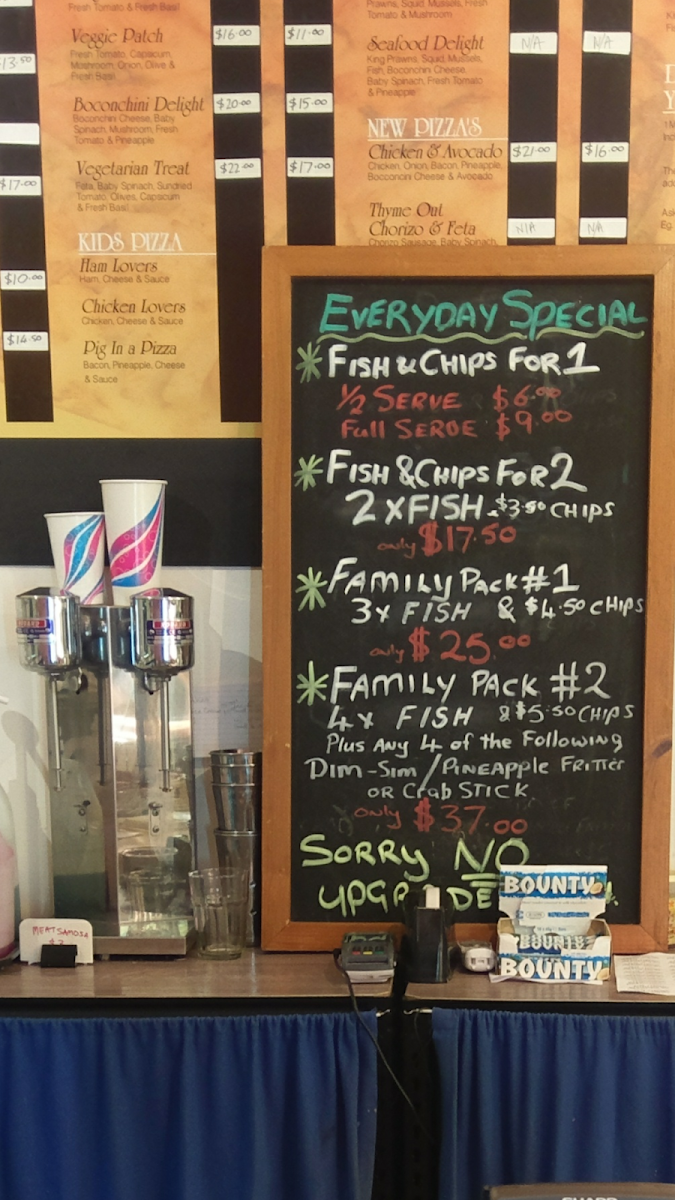 Fresh Tomato & Fresh Basil
Veggie Patch
Fresh Tomato, Capsicum,
Mushroom, Onion, Olive &
Fresh Basil
$16.00
$11.00
13.50
Boconchini Delight
Boconchini Cheese, Baby
Spinach, Mushroom, Fresh
Tomato & Pineapple
$20.00
$15.00
Vegetarian Treat
Feta, Baby Spinach, Sundried
Tomato, Olives, Capsicum
& Fresh Basil
$22.00
$17.00
$17.00
KIDS PIZZA
Ham Lovers
Ham, Cheese & Sauce
$10.00
Chicken Lovers
Chicken, Cheese & Sauce
$14.50
Pig In a Pizza
Bacon, Pineapple, Cheese
& Sauce
Prawns, Squid, Mussels, Fresh
Tomato & Mushroom
Seafood Delight
King Prawns, Squid, Mussels,
Fish, Boconchini Cheese,
Baby Spinach, Fresh Tomato
& Pineapple
N/A
N/A
NEW PIZZA'S
Chicken & Avocado
Chicken, Onion, Bacon, Pineapple,
Bocconcini Cheese & Avocado
$21.00
$16.00
Thyme Out
Chorizo & Feta
Chorizo Sausage, Baby Spinach,
N/A
N/A
EVERYDAY SPECIAL
* FISH & CHIPS FOR 1
1/2 SERVE $6.00
Full SERVE $9.00
* FISH & CHIPS FOR 2
2 x FISH & $3.50 CHIPS
only $17.50
* FAMILY PACK #1
3x FISH & $4.50 CHIPS
only $25.00
* FAMILY PACK #2
4x FISH & $5.50 CHIPS
Plus Any 4 of the Following
Dim-Sim / PINEAPPLE FRITTER
OR Crab STICK
only $37.00
SORRY NO
UPGRADE
BOUNTY
BOUNTY
BOUNTY
MEAT SAMOSA
$3